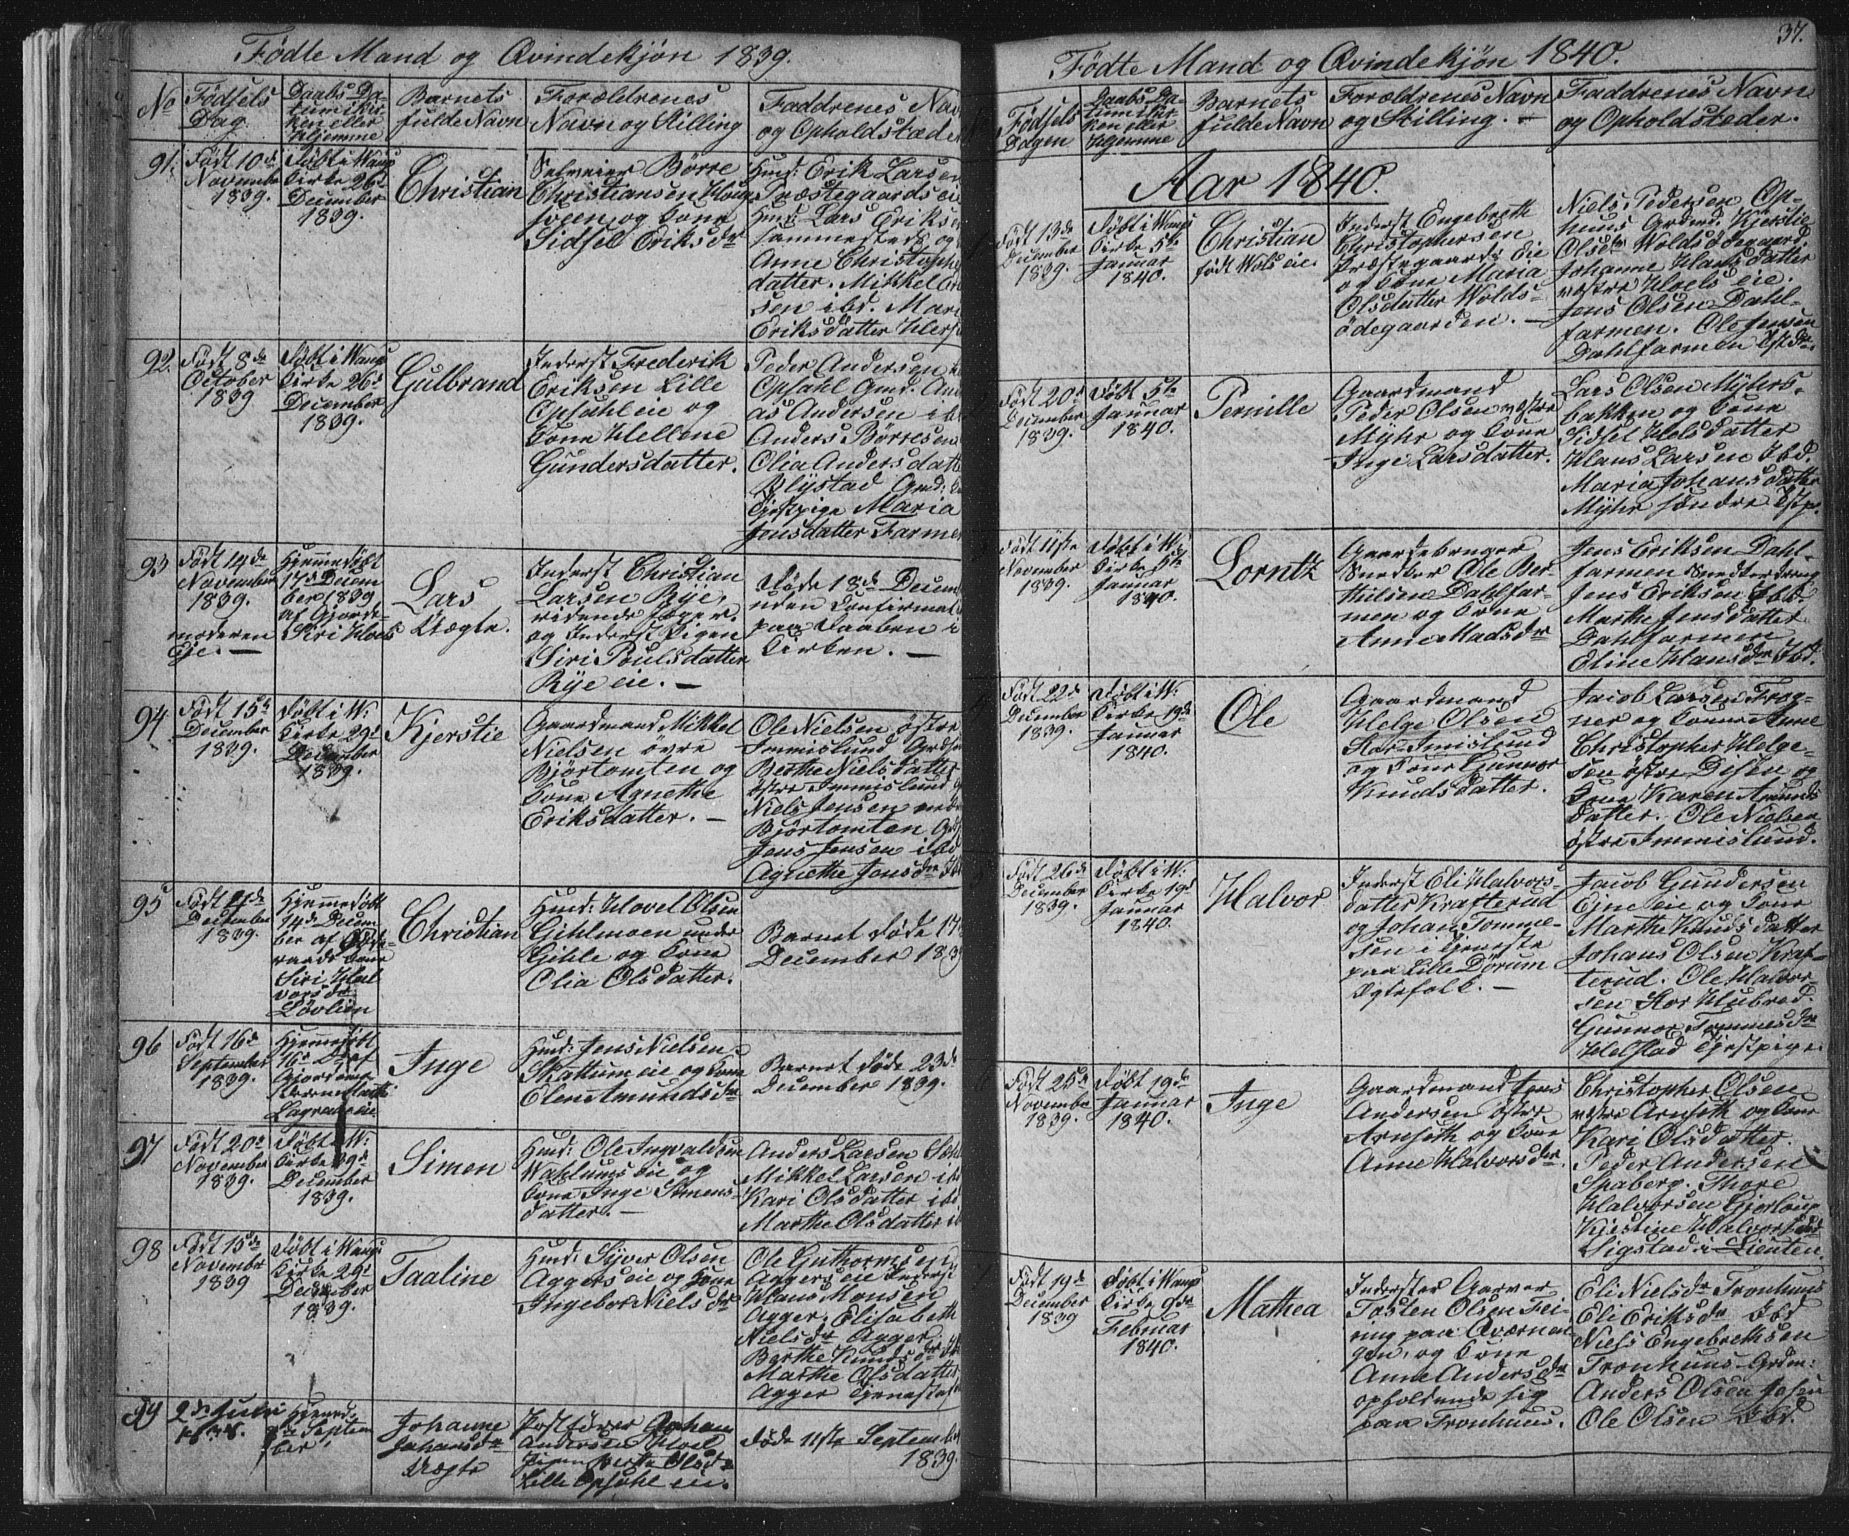 Fødte Mand og Qvindekjøn 1839.
No
Fødsels
Dag
Daabs Da-
tum i Kir
ken eller
Hjemme
Barnets
fulde Navn
Forældrenes
Navn og Stilling
Faddrenes Nav
og Opholdstæde
91.
Født 10de
Novembr
1839.
Døbt i Wangs
Kirke 26d
December
1839.
Christian
Selveier Børre
Christiansen
sveen og Kone
Sidsel Eriksdr
Hmd: Erik Larsen
Præstegaards eie
Hmd: Lars Eriks
sammesteds og
Anne Christoph
datter. Mikkel
sen ibd. Mari
Eriksdatter
92.
Født 8de
October
1839
Døbt i Wangs
Kirke 26d
December
1839.
Gulbrand
Inderst Frederik
Eriksen Lille
Opsahl eie og
Kone Hellene
Gundersdatter.
Peder Andersen
Opsahl Gmd. And
as Andersen ibd
Anders Børresen
Olia Andersdatt
Blystad Gmd:
Tjpige Maria
Jensdatter Farmen
93
Født 14de
November
1839.
moderen
Eie. —
Hjemmedøbt
17d Decem
ber 1839
af Gjorde-
Siri Hoel
Lars
Uægte.
Inderst Christian
Larsen Rye,
ridende Jæger
og Inderst Pigen
Siri Poulsdatter
Rye eie. —
Døde 18de Decem
uden Confirmat
paa Daaben i
Kirken. —
94
Født 15d
December
1839.
Døbt i W:
Kirke 29d
December
1839.
Kjerstie
Gaardmand Mikkel
Nielsen øvre
Bjørtomten og
Kone Agnethe
Eriksdatter. —
Ole Nielsen østre
Immislund
Berthe Nielsdatter
østre Immislund
Niels Jensen
Bjørtomten
Jens Jensen ibd
Agnethe Jensdr
95
Født
December
1839.
Hjemmedøbt
14de Decem-
ber af
Kone
Siri Hal
vorsdr
Løvlien
Christian
Hmd: Hovel Olsen
Gihlmoen under
Gihle og Kone
Olia Olsdatter.
Barnet døde 17d
December 1839
96
Født 16de
September
1839.
Hjemmedøbt
Inge
Hmd: Jens Nielsen
Skattum eie og Kone
Elen Amundsdr
Barnet døde 23de
December 1839.
97
Født 20d
November
1839.
Døbt i W:
Kirke 29d
December
1839.
Simen
Hmd: Ole Ingvaldsen
Wahlunds Eie og
Kone Inge Simens-
datter. —
Anders Larsen
Mikkel Larsen ibd
Kari Olsdatter ibd
Marthe Olsdatter ib
98
Født 15de
November
1839
Døbt i Wangs
Kirke 29d
December
1839.
Taaline
Hmd: Syver Olsen
Aggers eie og Kone
Ingebor Nielsdr
Ole Guthormsen
Aggers eie Inderst
Hans Monsen
Agger, Elisabeth
Nielsdr Agger.
Berthe Knudsdr
Marthe Olsdatter
Agger
99
2de Juli
Hjemd.
Septem
ber
Johanne
Johansdr
Uægte
Johan
Andersen Hoel
Pigen Berthe Olsdr
Lille Opsahl eie.
døde 11te September
1839.
37.
Fødte Mand og Qvindekjøn 1840.
Fødsels
Dagen
Daabs Da-
tum i Kir
ken eller
Hjemme
Barnets
fulde Navn
Forældrenes Navn
og Stilling. —
Faddrenes Navn
og Opholdsteder.
Aar 1840.
Født 13de
December
1839.
Døbt i Wangs
Kirke 5te
Januar
1840.
Christian
født Wols eie.
Inderst Engebreth
Christophersen
Præstegaards Eie
og Kone Maria
Olsdatter Wolds-
ødegaarden. —
Niels Pedersen Op-
huus Grdmd. Kjerstie
Olsdtr Woldsødegaard.
Johanne Hansdatter
vestre Hoels eie.
Jens Olsen Dahl-
farmen. Ole Jensen
Dahlfarmen
Født 20de
December
1839.
Døbt 5te
Januar
1840.
Pernille
Gaardmand
Peder Olsen vestre
Myhr og Kone
Inge Larsdatter.
Lars Olsen Myhrs-
bakken og Kone
Sidsel Helsdatter
Hans Larsen Ibd.
Maria Johansdatter
Myhr søndre
Født 11te
November
1839.
Døbt i W:
Kirke 5te
Januar
1840.
Lorntz
Gaardebruger
Snedker Ole Ber-
ntsen Dahlfar-
men og Kone
Anne Madsdr
Jens Eriksen Dahl-
farmen Snedkerdreng
Jens Eriksen Ibd
Marthe Jensdatter
Dahlfarmen
Eline Hansdr Ibd.
Født 22de
December
1839.
Døbt i W:
Kirke 19de
Januar
1840.
Ole
Gaardmand
Helge Olsen
Stor Imislund
og Kone Gunnor
Knudsdatter.
Jacob Larsen Frog-
ner og Kone
Christopher Helge-
sen østre Disen og
Kone Karen Amunds
datter. Ole Nielsen
østre Immislund.
Født 26de
December
1839.
Døbt i W:
Kirke 19d
Januar
1840.
Halvor
Inderst Eli Halvors-
datter Krafterud
og Johan Tomme-
sen i tjeneste
paa Lille Dørum
Ægtefolk. —
Jacob Gundersen
Eine eie og Kone
Marthe Knudsdatter
Johans Olsen Kraf-
terud. Ole Halvor
sen Stor Hubred.
Gunnor Tommesdr
Helstad Tjpige
Født 25de
November
1839.
Døbt 19de
Januar
1840.
Inge
Gaardmand Jens
Andersen østre
Arnseth og Kone
Anne Halvorsdr.
Christopher Olsen
vestre Arnseth og Kone
Kari Olsdatter.
Peder Andersen
Spaberg. Thore
Halvorsen
Kristine Halvorsdr
Sigstad i Lieuten.
Født 19de
December
1839
Døbt i Wangs
Kirke 9de
Februar
1840.
Mathea
Inderster Garver
Tosten Olsen Fei-
ring paa Qværnen-
gen, og Kone
Anne Andersdr
opholdende sig
paa Tronhuus.
Eli Nielsdr Tronhuus
Eli Eriksdr Ibd
Niels Engebrethsen
Tronhuus Grdm:
Anders Olsen
Ole Olsen Ibd.